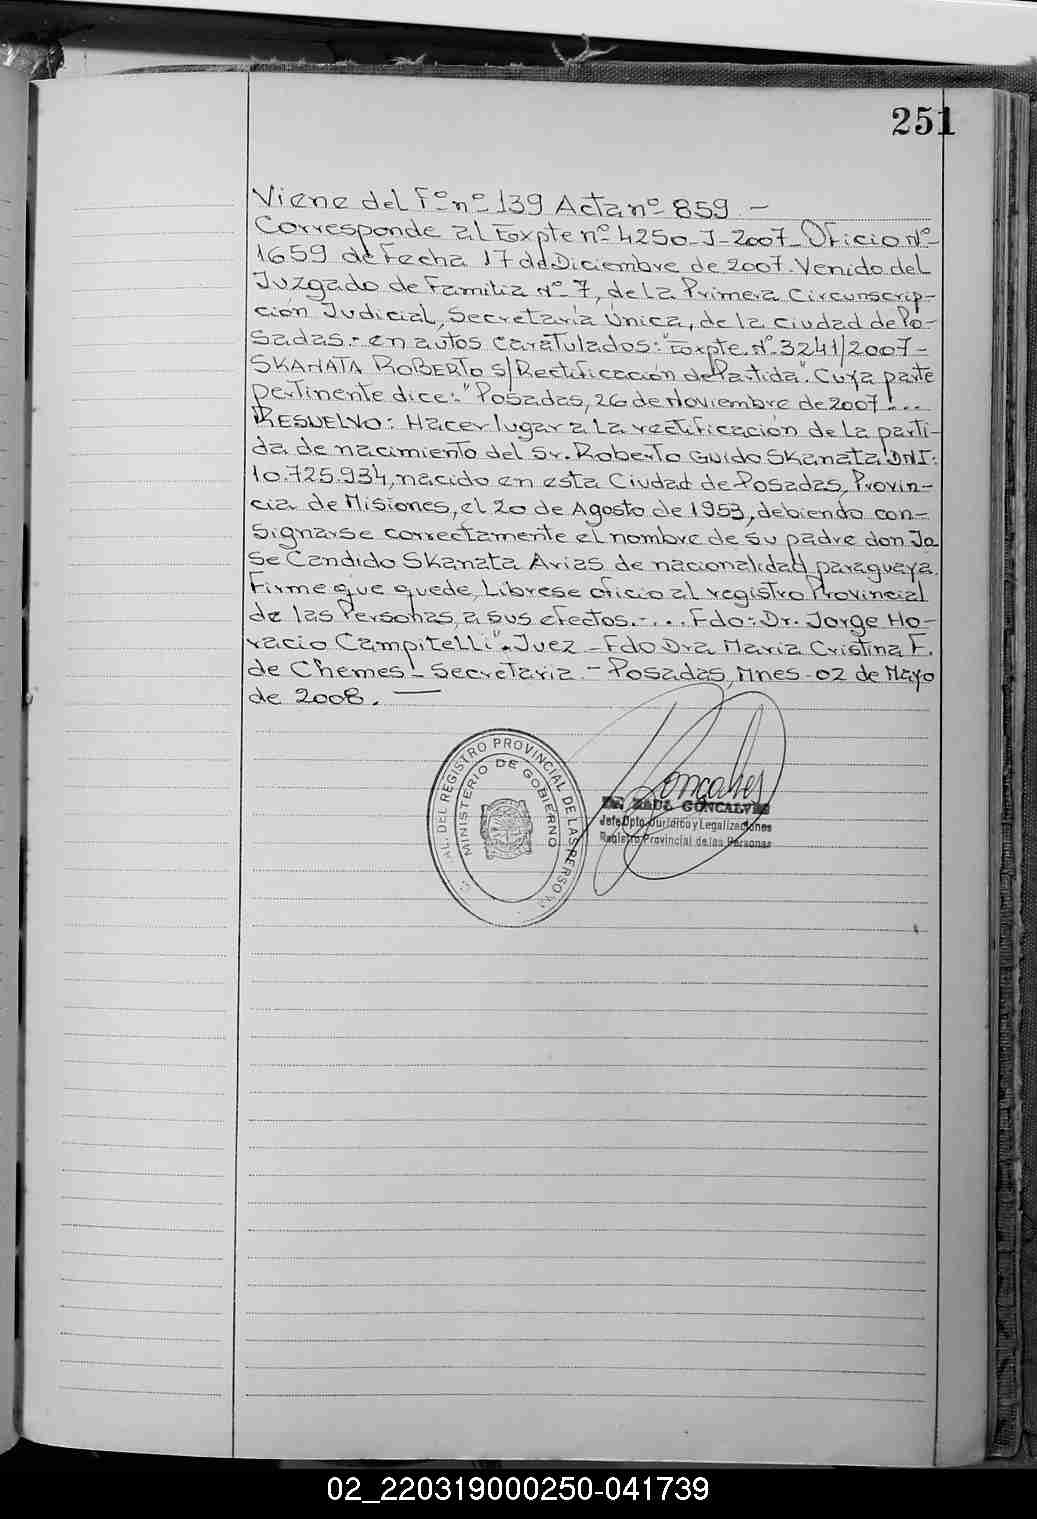 251
Viene del Fº nº 139 Acta nº 859.-
Corresponde al Expte nº 4250-J-2007-Oficio Nº
1659 de Fecha 17 de Diciembre de 2007. Venido del
Juzgado de Familia Nº 7, de la Primera Circunscrip-
ción Judicial, Secretaría Única, de la ciudad de Po-
sadas.- en autos Caratulados: "Expte. Nº 3241/2007-
SKANATA ROBERTO S/Rectificación de Partida". Cuya parte
pertinente dice: "Posadas, 26 de Noviembre de 2007!...
RESUELVO: Hacer lugar a La rectificación de La parti-
da de nacimiento del Sr. Roberto Guido Skanata DNI:
10.725.934, nacido en esta Ciudad de Posadas, Provin-
cia de Misiones, el 20 de Agosto de 1953, debiendo con-
signarse correctamente el nombre de su padre don Jo
se Candido Skanata Arias de nacionalidad paraguaya.
Firme que quede, Librese oficio al registro Provincial
de las Personas, a sus efectos.-... Fdo: Dr. Jorge Ho-
racio Campitelli". Juez - Fdo Dra Maria Cristina F.
de Chemes - Secretaria.- Posadas, Mnes-02 de Mayo
de 2008.
AL. DEL REGISTRO PROVINCIAL DE LAS PERSONA
MINISTERIO DE GOBIERNO
Goncalves
Dr. RAUL GONCALVES
Jefe Dpto. Jurídico y Legalizaciones
Registro Provincial de las Personas
02_220319000250-041739